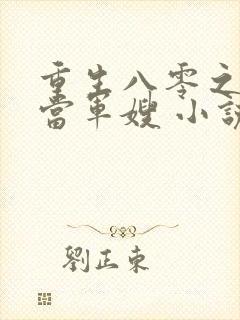 重生八零之
當軍嫂 小說
劉正東